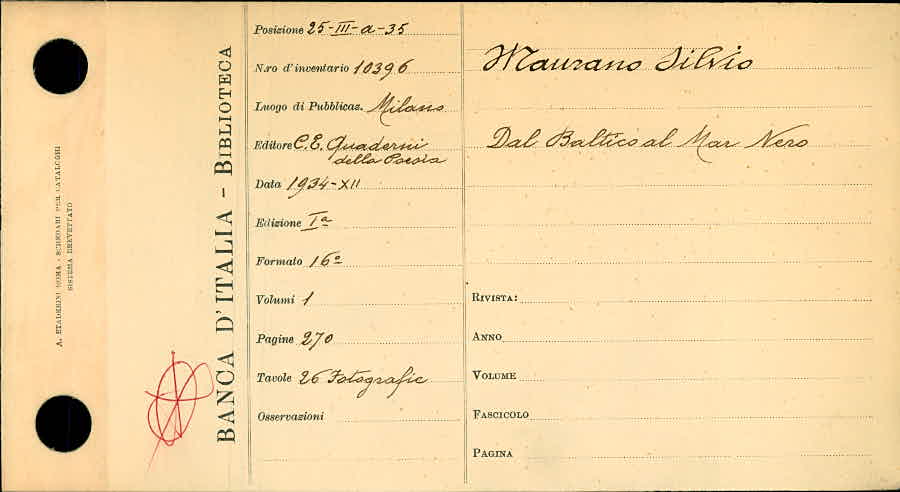 A. STADERINI ROMA - SCHEDARI PER CATALOGHI
SISTEMA BREVETTATO
BANCA D'ITALIA - BIBLIOTECA
Posizione 25-III-a-35
N.ro d'inventario 10396
Luogo di Pubblicaz. Milano
Editore C.E. Quaderni
della Poesia
Data 1934-XII
Edizione Iª
Formato 16º
Volumi 1
Pagine 270
Tavole 26 Fotografie
Osservazioni
Maurano Silvio
Dal Baltico al Mar Nero
RIVISTA:
ANNO
VOLUME
FASCICOLO
PAGINA